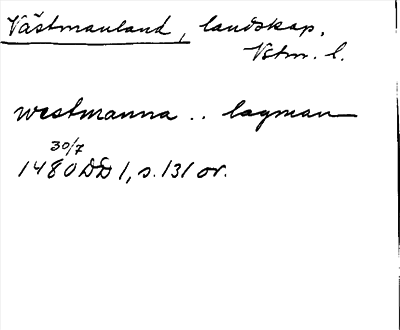 Västmanland, landskap.
Vstm. l.
westmanna .. lagman
30/7
1480 DD 1, s. 131 or.